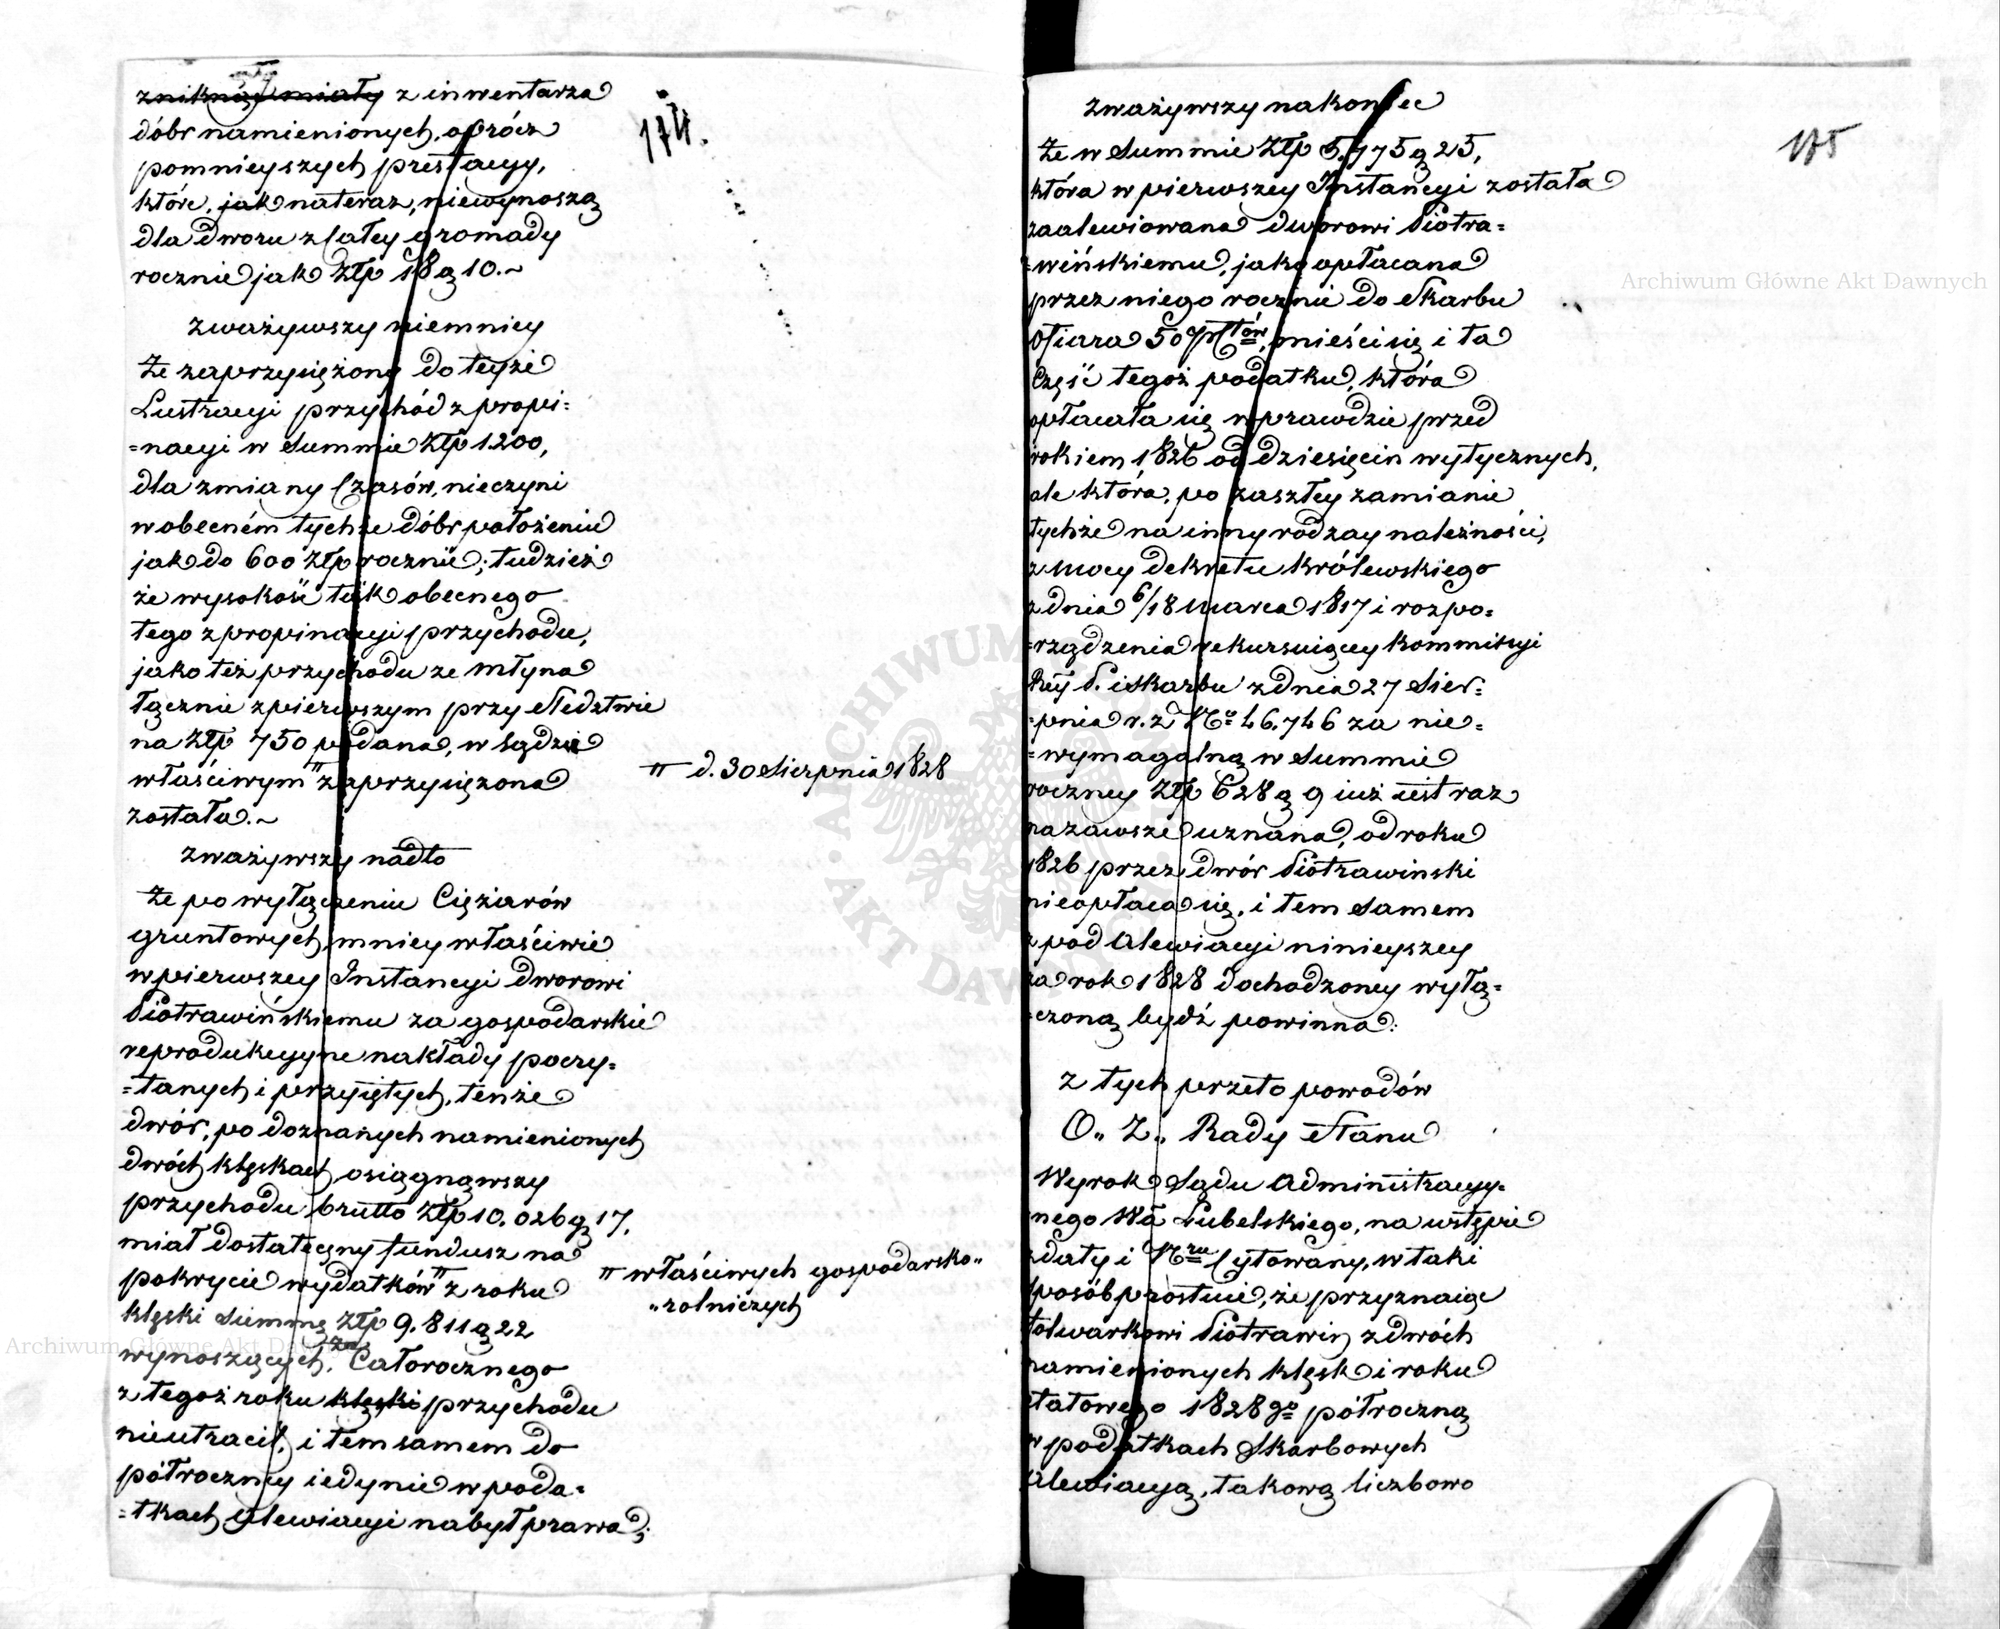 174.
zniknąć miały z inwentarza
dóbr namienionych, oprócz
pomnieyszych prestacyy,
które, jak nateraz, niewynoszą
dla dworu z całey gromady
rocznie jak Złp 18 g 10.~
zważywszy niemniey
Że zaprzysiężony do teyże
Lustracyi przychód z propi=
=nacyi w Summie Złp 1200,
dla zmiany Czasów, nieczyni
w obecném tychże dóbr położeniu
jak do 600 Złp rocznie; tudzież
że wysokość tak obecnego
tego z propinacyi przychodu,
jako też przychodu ze młyna
łącznie z pierwszym przy śledztwie
na Złp 750 podana, w Sądzie
właściwym " zaprzysiężona
została.~
" d. 30 Sierpnia 1828
zważywszy nadto
Że po wyłączeniu Ciężarów
gruntowych, mniey właściwie
w pierwszey Instancyi dworowi
Piotrawińskiemu za gospodarskie
reprodukcyyne nakłady poczy=
=tanych i przyjętych, tenże
dwór, po doznanych namienionych
dwóch klęskach, osiągnąwszy
przychodu brutto Złp 10.026 g 17,
miał dostateczny fundusz na
pokrycie wydatków " z roku
" właściwych gospodarsko„
„rolniczych
klęski Summę Złp 9.811 g 22
wynoszących, za
Całorocznego
z tegoż roku klęski przychodu
nieutracił, i tem samem do
półroczney i edynie w poda=
=tkach Alewiacyi nabył prawa;
175
zważywszy nakoniec
Że w Summie Złp 5.775 g 25,
która w pierwszey Instancyi została
zaalewiowana dworowi Piotra=
=wińskiemu, jako opłacana
przez niego rocznie do Skarbu
Ofiara 50 Pctów, mieści się i ta
Część tegoż podatku, która
opłacała się wprawdzie przed
rokiem 1826 od dziesięcin wytycznych,
ale która, po zaszłey zamianie
tychże na inny rodzay należności,
z mocy dekretu królewskiego
z dnia 6/18 Marca 1817 i rozpo=
=rządzenia rekursuiącey Kommissyi
Rząd. P. i Skarbu z dnia 27 Sier=
=pnia r. z. No 46.746 za nie=
=wymagalną w Summie
roczney Złp 628 g 9 iuż iest raz
na zawsze uznana, od roku
1826 przez dwór Piotrawinski
nieopłaca się, i tem samem
z pod Alewiacyi ninieyszey
za rok 1828 dochodzoney wyłą=
=czoną bydź powinna:
z tych przeto powodów
O„ Z„ Rady Stanu
Wyrok Sądu Administracyy=
nego Wa Lubelskiego, na wstępie
z daty i Nru Cytowany, w taki
sposób prostuie, że przyznaiąc
folwarkowi Piotrawin z dwóch
namienionych klęsk i roku
etatowego 1828go półroczną
w podatkach Skarbowych
Alewiacyą, takową liczbowo